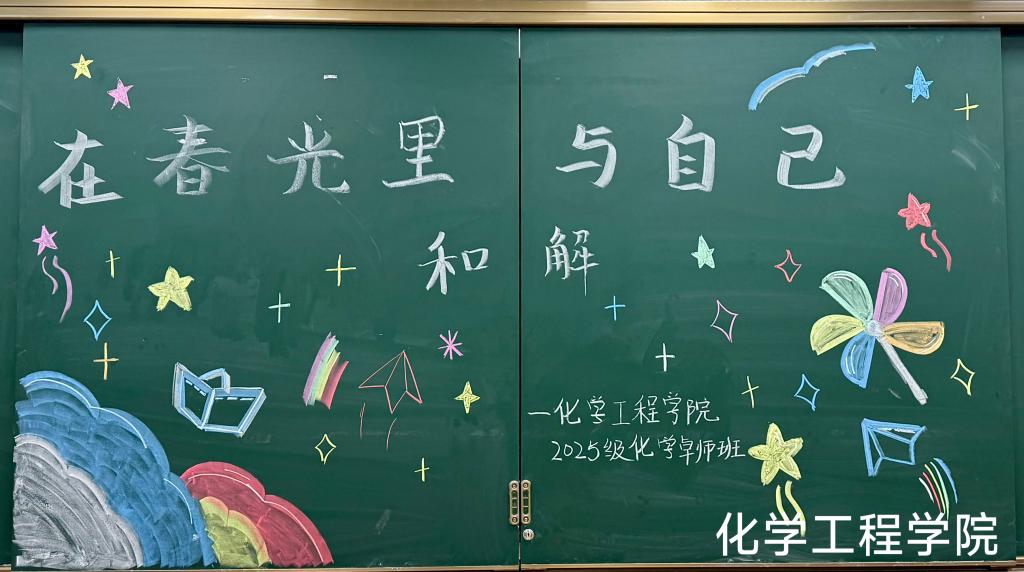 在春光里与自己
和解
一化学工程学院
2025级化学卓师班
化学工程学院